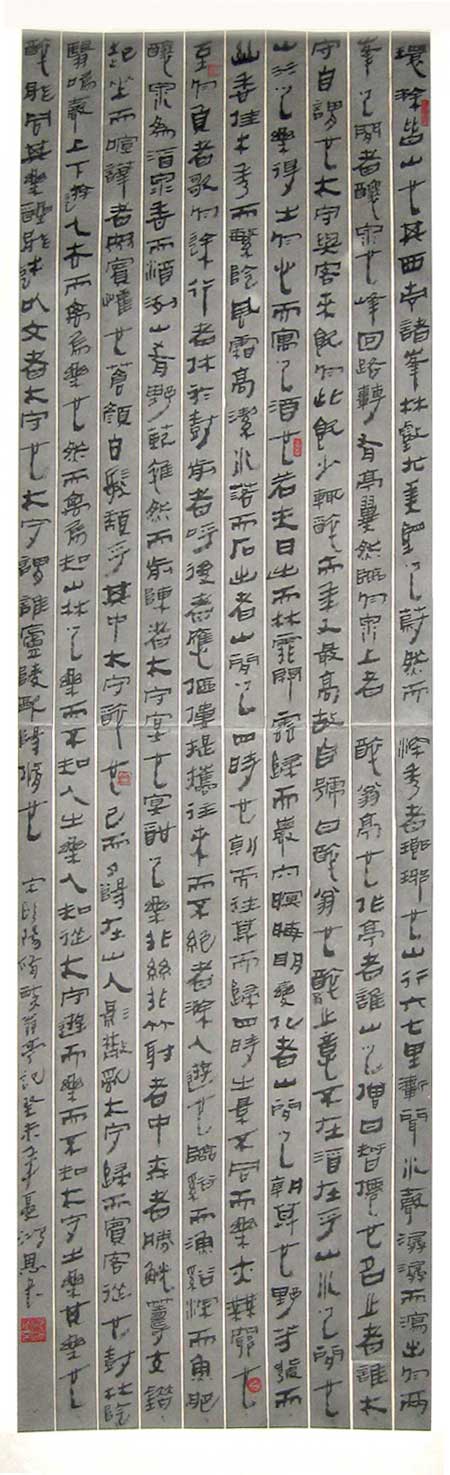 環滁皆山也其西南諸峯林壑尤美望之蔚然而深秀者瑯琊也山行六七里漸聞水聲潺潺而瀉出於兩
峯之間者釀泉也峰回路轉有亭翼然臨於泉上者醉翁亭也作亭者誰山之僧曰智僊也名之者誰太
守自謂也太守與客來飲於此飲少輒醉而年又最高故自號曰醉翁也醉之意不在酒在乎山水之間也
山水之樂得之於心而寓之酒也若夫日出而林霏開雲歸而巖穴暝晦明變化者山間之朝暮也野芳發而
幽香佳木秀而繁陰風霜高潔水落而石出者山間之四時也朝而往暮而歸四時之景不同而樂亦無窮也
至於負者歌於塗行者休於樹前者呼後者應傴僂提攜往來而不絕者滁人遊也臨谿而漁谿深而魚肥
釀泉為酒泉香而酒洌山肴野蔌雜然而前陳者太守宴也宴酣之樂非絲非竹射者中弈者勝觥籌交錯
起坐而喧譁者眾賓懽也蒼顏白髮頹乎其中太守醉也已而夕陽在山人影散亂太守歸而賓客從也樹林陰
翳鳴聲上下遊人去而禽鳥樂也然而禽鳥知山林之樂而不知人之樂人知從太守遊而樂而不知太守之樂其樂也
醉能同其樂醒能述以文者太守也太守謂誰廬陵歐陽脩也 宋歐陽脩醉翁亭記癸未年夏